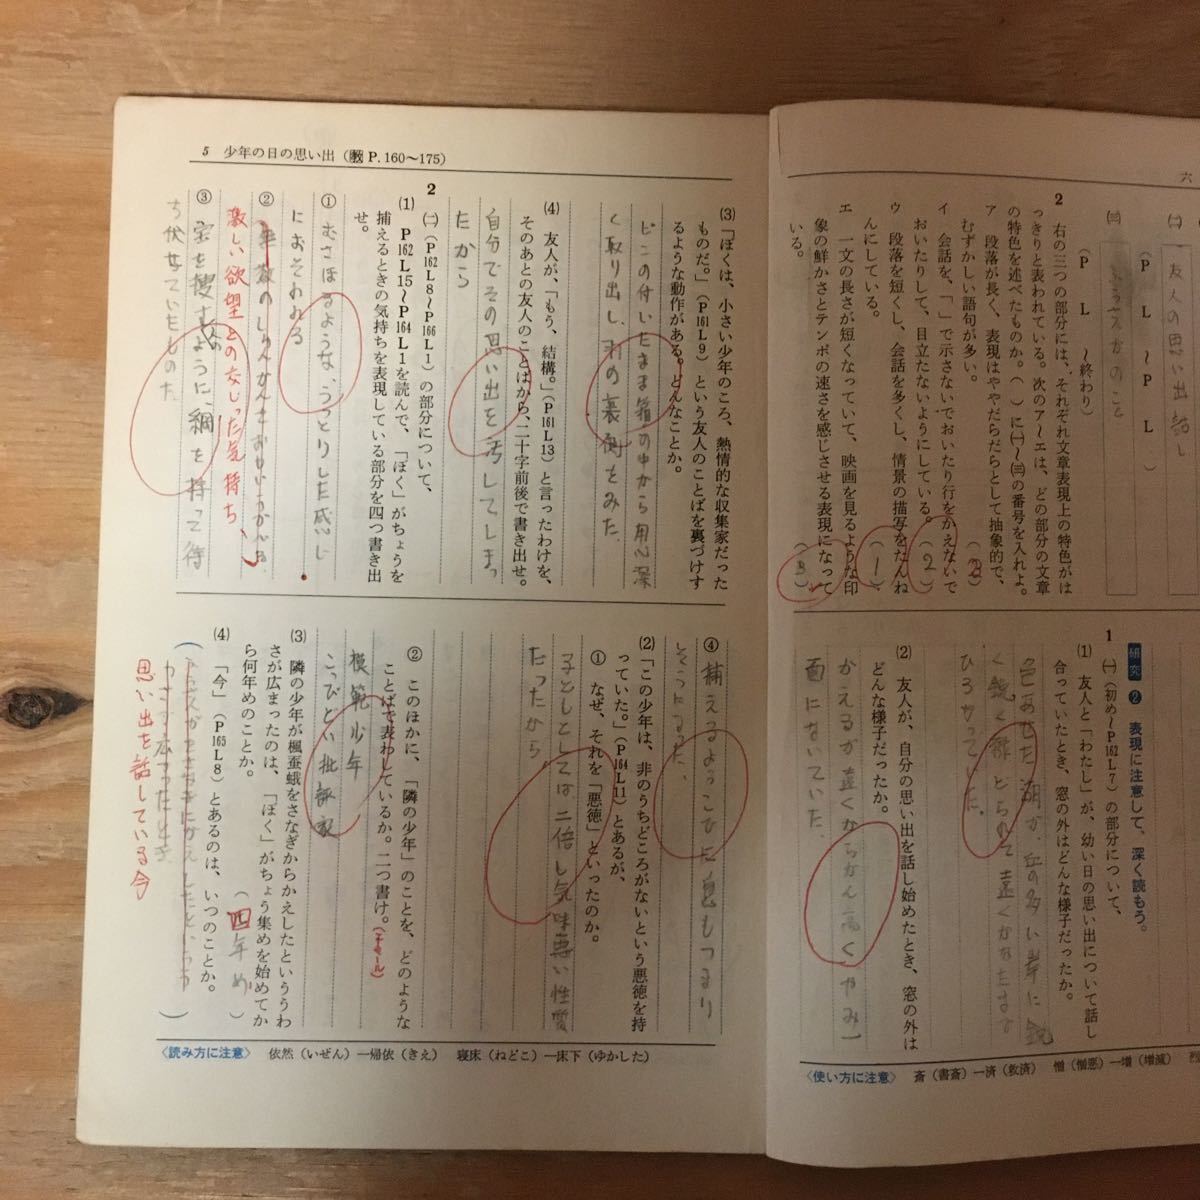 六
㈡
友人の思い出話し
(P　L　～P　L　)
㈢
のこと
(P　L　～終わり)
2　右の三つの部分には、それぞれ文章表現上の特色がは
っきりと表われている。次のア～エは、どの部分の文章
の特色を述べたものか。(　)に㈠～㈢の番号を入れよ。
ア　段落が長く、表現はややだらだらとして抽象的で、
むずかしい語句が多い。
(2)
イ　会話を、「　」で示さないでおいたり行をかえないで
おいたりして、目立たないようにしている。
(2)
ウ　段落を短くし、会話を多くし、情景の描写をたんね
んにしている。
(1)
エ　一文の長さが短くなっていて、映画を見るような印
象の鮮かさとテンポの速さを感じさせる表現になって
いる。
(3)
研究 ② 表現に注意して、深く読もう。
1　㈠(初め～P162L7)の部分について、
(1)　友人と「わたし」が、幼い日の思い出について話し
合っていたとき、窓の外はどんな様子だったか。
色あせた湖が、丘の多い岸に鋭
く鋭く
ひろがっていた。
(2)　友人が、自分の思い出を話し始めたとき、窓の外は
どんな様子だったか。
かえるが遠くからかん高くやみ一
面にないていた。
〈使い方に注意〉　斎(書斎)―済(救済)　憎(憎悪)―増(増減)
5　少年の日の思い出(教P.160～175)
(3)「ぼくは、小さい少年のころ、熱情的な収集家だった
ものだ。」(P161L9)という友人のことばを裏づけす
るような動作がある。どんなことか。
ピンの付いたまま箱の中から用心深
く取り出し、羽の裏側をみた。
(4)　友人が、「もう、結構。」(P161L13)と言ったわけを、
そのあとの友人のことばから、二十字前後で書き出せ。
自分でその思い出を汚してしまっ
たから
2　㈡(P162L8～P166L1)の部分について、
(1)　P162L15～P164L1を読んで、「ぼく」がちょうを
捕えるときの気持ちを表現している部分を四つ書き出
せ。
① むさぼるような、うっとりした感じ
におそわれる
②
激しい欲望との交じった気持ち、
③ 宝を捜す人のように、網を持って待
ち伏せていたものた
④ 捕えるよろこびに息もつまり
そうになった、
(2)「この少年は、非のうちどころがないという悪徳を持
っていた。」(P164L11)とあるが、
①　なぜ、それを「悪徳」といったのか。
子どもとしては二倍も気味悪い性質
だったから
②　このほかに、「隣の少年」のことを、どのような
ことばで表わしているか。二つ書け。(エミール)
模範少年
こっぴどい批評家
(3)　隣の少年が楓蚕蛾をさなぎからかえしたといううわ
さが広まったのは、「ぼく」がちょう集めを始めてか
ら何年めのことか。
(四年め)
(4)　「今」(P165L8)とあるのは、いつのことか。
思い出を話している今
〈読み方に注意〉　依然(いぜん)―帰依(きえ)　寝床(ねどこ)―床下(ゆかした)